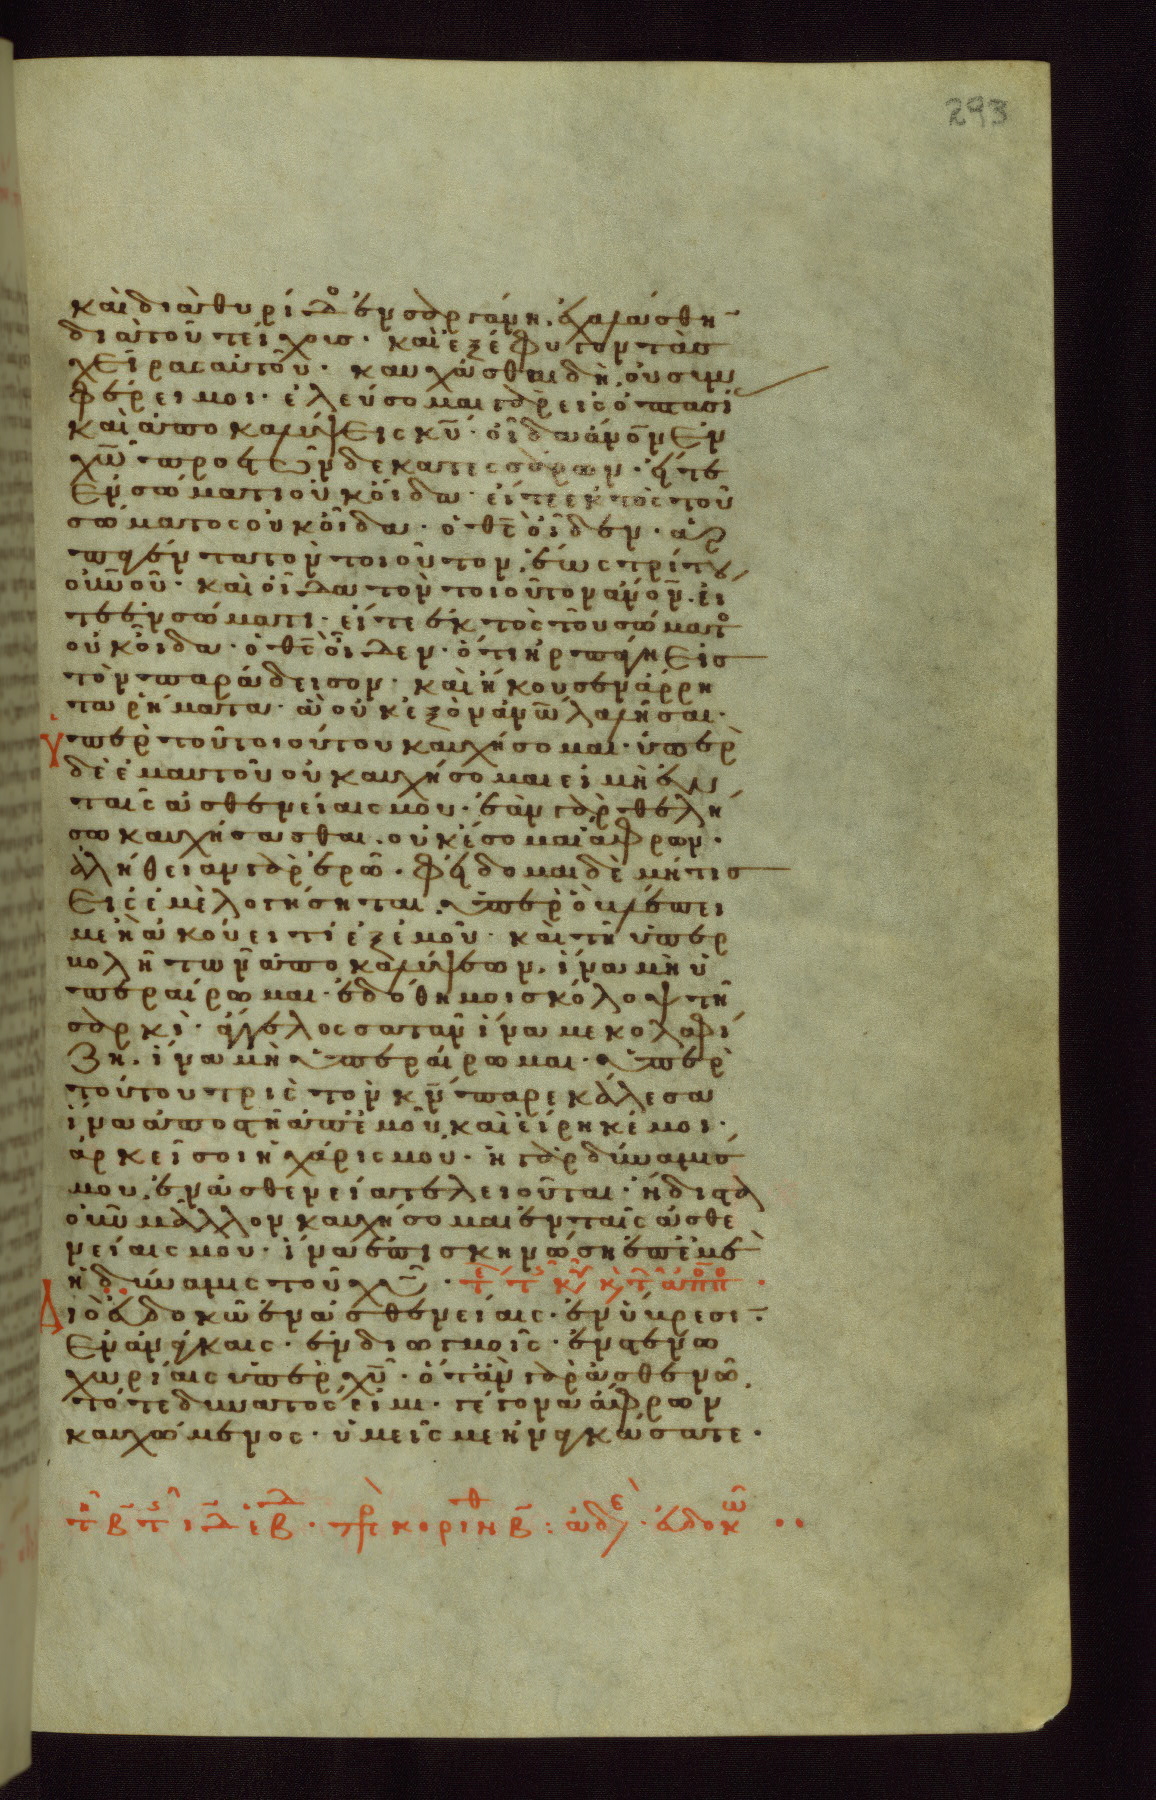 293
καὶ διὰ θυρίδο ἐν σαργάνη. ἐχαλάσθην
διὰ τοῦ τείχους· καὶ ἐξέφυγον τὰσ
χεῖρας αὐτοῦ· καυχᾶσθαι δὴ, οὐ συμ
φέρει μοι· ἐλεύσομαι γὰρ εἰς ὀπτασί
καὶ ἀποκαλύψεις κ̅υ̅· οἶδα ἄν̅ο̅ν̅ ἐν
χ̅ω̅ πρὸ ἐτῶν δεκατεσσάρων· εἴτε
ἐν σώματι οὐκ οἶδα· εἴτε ἐκτὸς τοῦ
σώματος οὐκ οἶδα· ὁ θ̅ς̅ οἶδεν· ἁρ
παγέντα τὸν τοιοῦτον. ἕως τρίτου
ο̅υ̅ν̅ο̅υ̅· καὶ οἶδα τὸν τοιοῦτον ἄν̅ο̅ν̅· εἴ
τε ἐν σώματι· εἴτε ἐκτὸς τοῦ σώματο
οὐκ οἶδα· ὁ θ̅ς̅ οἶδεν· ὅτι ἡρπάγη εἰσ
τὸν παράδεισον· καὶ ἤκουσεν ἄρρη
τα ῥήματα· ἃ οὐκ ἐξὸν ἀν̅ω̅ λαλῆσαι·
ὑπὲρ τοῦ τοιούτου καυχήσομαι· ὑπὲρ
δὲ ἐμαυτοῦ οὐ καυχήσομαι εἰ μὴ ἐν
ταῖς ἀσθενείαις μου· ἐὰν γὰρ θελή
σω καυχήσασθαι. οὐκ ἔσομαι ἄφρων·
ἀλήθειαν γὰρ ἐρῶ· φείδομαι δὲ μήτισ
εἰς ἐμὲ λογήσηται. ὑπὲρ ὃ βλέπει
με ἢ ἀκούει τί ἐξ ἐμοῦ· καὶ τῆ ὑπερ
βολῆ τῶν ἀποκαλύψεων. ἵνα μὴ ὑ
περαίρωμαι· ἐδόθη μοι σκόλοψ τῆ
σαρκὶ· ἄγγελος σατᾶν ἵνα με κολαφί
ζη. ἵνα μὴ ὑπεραίρωμαι· ὑπὲρ
τούτου τρὶς τὸν κ̅ν̅ παρεκάλεσα
ἵνα ἀποστῆ ἀπ' ἐμοῦ, καὶ εἴρηκέ μοι·
ἀρκεῖ σοι ἡ χάρις μου· ἡ γὰρ δύναμισ
μου. ἐν ἀσθενεία τελειοῦται· ἥδιστα
οὖν μᾶλλον καυχήσομαι ἐν ταῖς ἀσθε
νείαις μου· ἵνα ἐπισκηνώση ἐπ' ἐμὲ
ἡ δύναμις τοῦ χ̅υ̅·
Διὸ εὐδοκῶ ἐν ἀσθενείαις· ἐν ὕβρεσι·
ἐν ἀνάγκαις· ἐν διωγμοῖς· ἐν στενο
χωρίαις ὑπὲρ χ̅υ̅· ὅταν γὰρ ἀσθενῶ,
τότε δυνατός εἰμι· γέγονα ἄφρων
καυχώμενος· ὑμεῖς με ἠναγκάσατε·